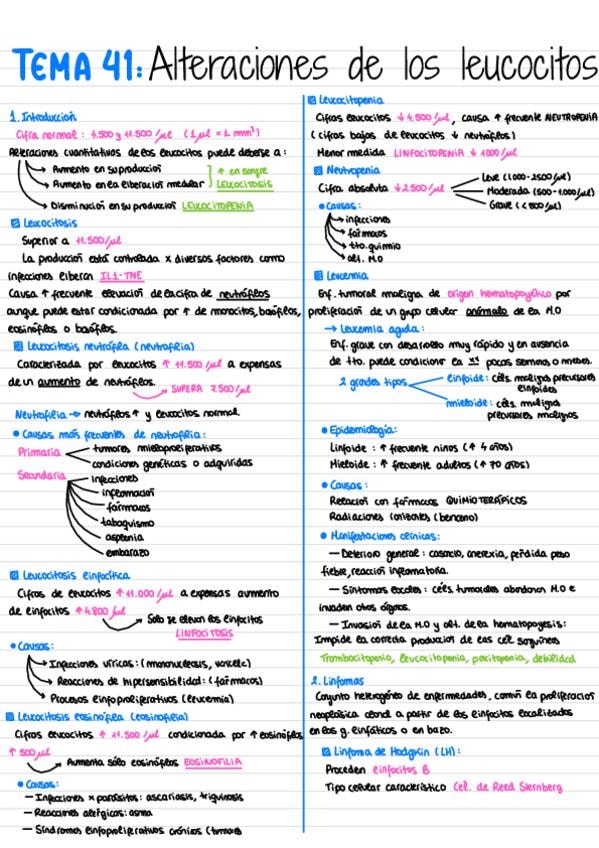 TEMA 41: Alteraciones de los leucocitos
1. Introducción
Cifra normal: 4.500 y 11.500 /µl (1 µl = 1 mm³)
Alteraciones cuantitativas de los leucocitos puede deberse a:
Aumento en su producción
Aumento en la liberación medular
↑ en sangre
LEUCOCITOSIS
Disminución en su producción LEUCOCITOPENIA
Leucocitosis
Superior a 11.500/µl
La producción está controlada x diversos factores como
infecciones liberan IL1-TNF
Causa ↑ frecuente elevación de la cifra de neutrófilos
aunque puede estar condicionada por ↑ de monocitos, basófilos,
eosinófilos o basófilos.
Leucocitosis neutrófila (neutrofilia)
Caracterizada por leucocitos ↑ 11.500 /µl a expensas
de un aumento de neutrófilos.
SUPERA 7.500/µl
Neutrofilia → neutrófilos ↑ y leucocitos normal.
• Causas más frecuentes de neutrofilia:
Primaria
tumores mieloproliferativos
condiciones genéticas o adquiridas
Secundaria
infecciones
inflamación
fármacos
tabaquismo
asplenia
embarazo
Leucocitosis linfocítica
Cifras de leucocitos ↑ 11.000 /µl a expensas aumento
de linfocitos ↑ 4.800 /µl
Solo se elevan los linfocitos
LINFOCITOSIS
• Causas:
Infecciones víricas: (mononucleosis, varicela)
Reacciones de hipersensibilidad: (fármacos)
Procesos linfoproliferativos (leucemia)
Leucocitosis eosinófila (eosinofilia)
Cifras leucocitos ↑ 11.500 /µl condicionada por ↑ eosinófilos
↑ 500 /µl
Aumenta sólo eosinófilos EOSINOFILIA
• Causas:
— Infecciones x parásitos: ascariasis, triquinosis
— Reacciones alérgicas: asma
— Síndromes linfoproliferativos crónicos (tumores
Leucocitopenia
Cifras leucocitos ↓ 4.500 /µl, causa ↑ frecuente NEUTROPENIA
(cifras bajas de leucocitos ↓ neutrófilos)
Menor medida LINFOCITOPENIA ↓ 1000 /µl
Neutropenia
Cifra absoluta ↓ 2.500 /µl
Leve (1.000-2.500 /µl)
Moderada (500-1.000/µl)
Grave (< 500/µl)
• Causas:
infecciones
fármacos
tto. quimio
alt. M.O
Leucemia
Enf. tumoral maligna de origen hematopoyético por
proliferación de un grupo celular anómalo de la M.O
→ Leucemia aguda:
Enf. grave con desarrollo muy rápido y en ausencia
de tto. puede condicionar la pocas semanas o meses.
2 grandes tipos
linfoide: céls. malignas precursores
linfoides
mieloide: céls. malignas
precursores malignos
• Epidemiología:
Linfoide: ↑ frecuente niños (↑ 4 años)
Mieloide: ↑ frecuente adultos (↑ 70 años)
• Causas:
Relación con fármacos QUIMIOTERÁPICOS
Radiaciones ionizantes (benceno)
• Manifestaciones clínicas:
— Deterioro general: cansancio, anorexia, pérdida peso
fiebre, reacción inflamatoria.
— Síntomas locales: céls. tumorales abandonan M.O e
invaden otros órganos.
— Invasión de la M.O y alt. de la hematopoyesis:
Impide la correcta producción de las cél. sanguíneas
Trombocitopenia, leucocitopenia, pancitopenia, debilidad
2. Linfomas
Conjunto heterogéneo de enfermedades, común la proliferación
neoplásica clonal a partir de los linfocitos localizados
en los g. linfáticos o en bazo.
Linfoma de Hodgkin (LH):
Proceden linfocitos B
Tipo celular característico Cel. de Reed Sternberg